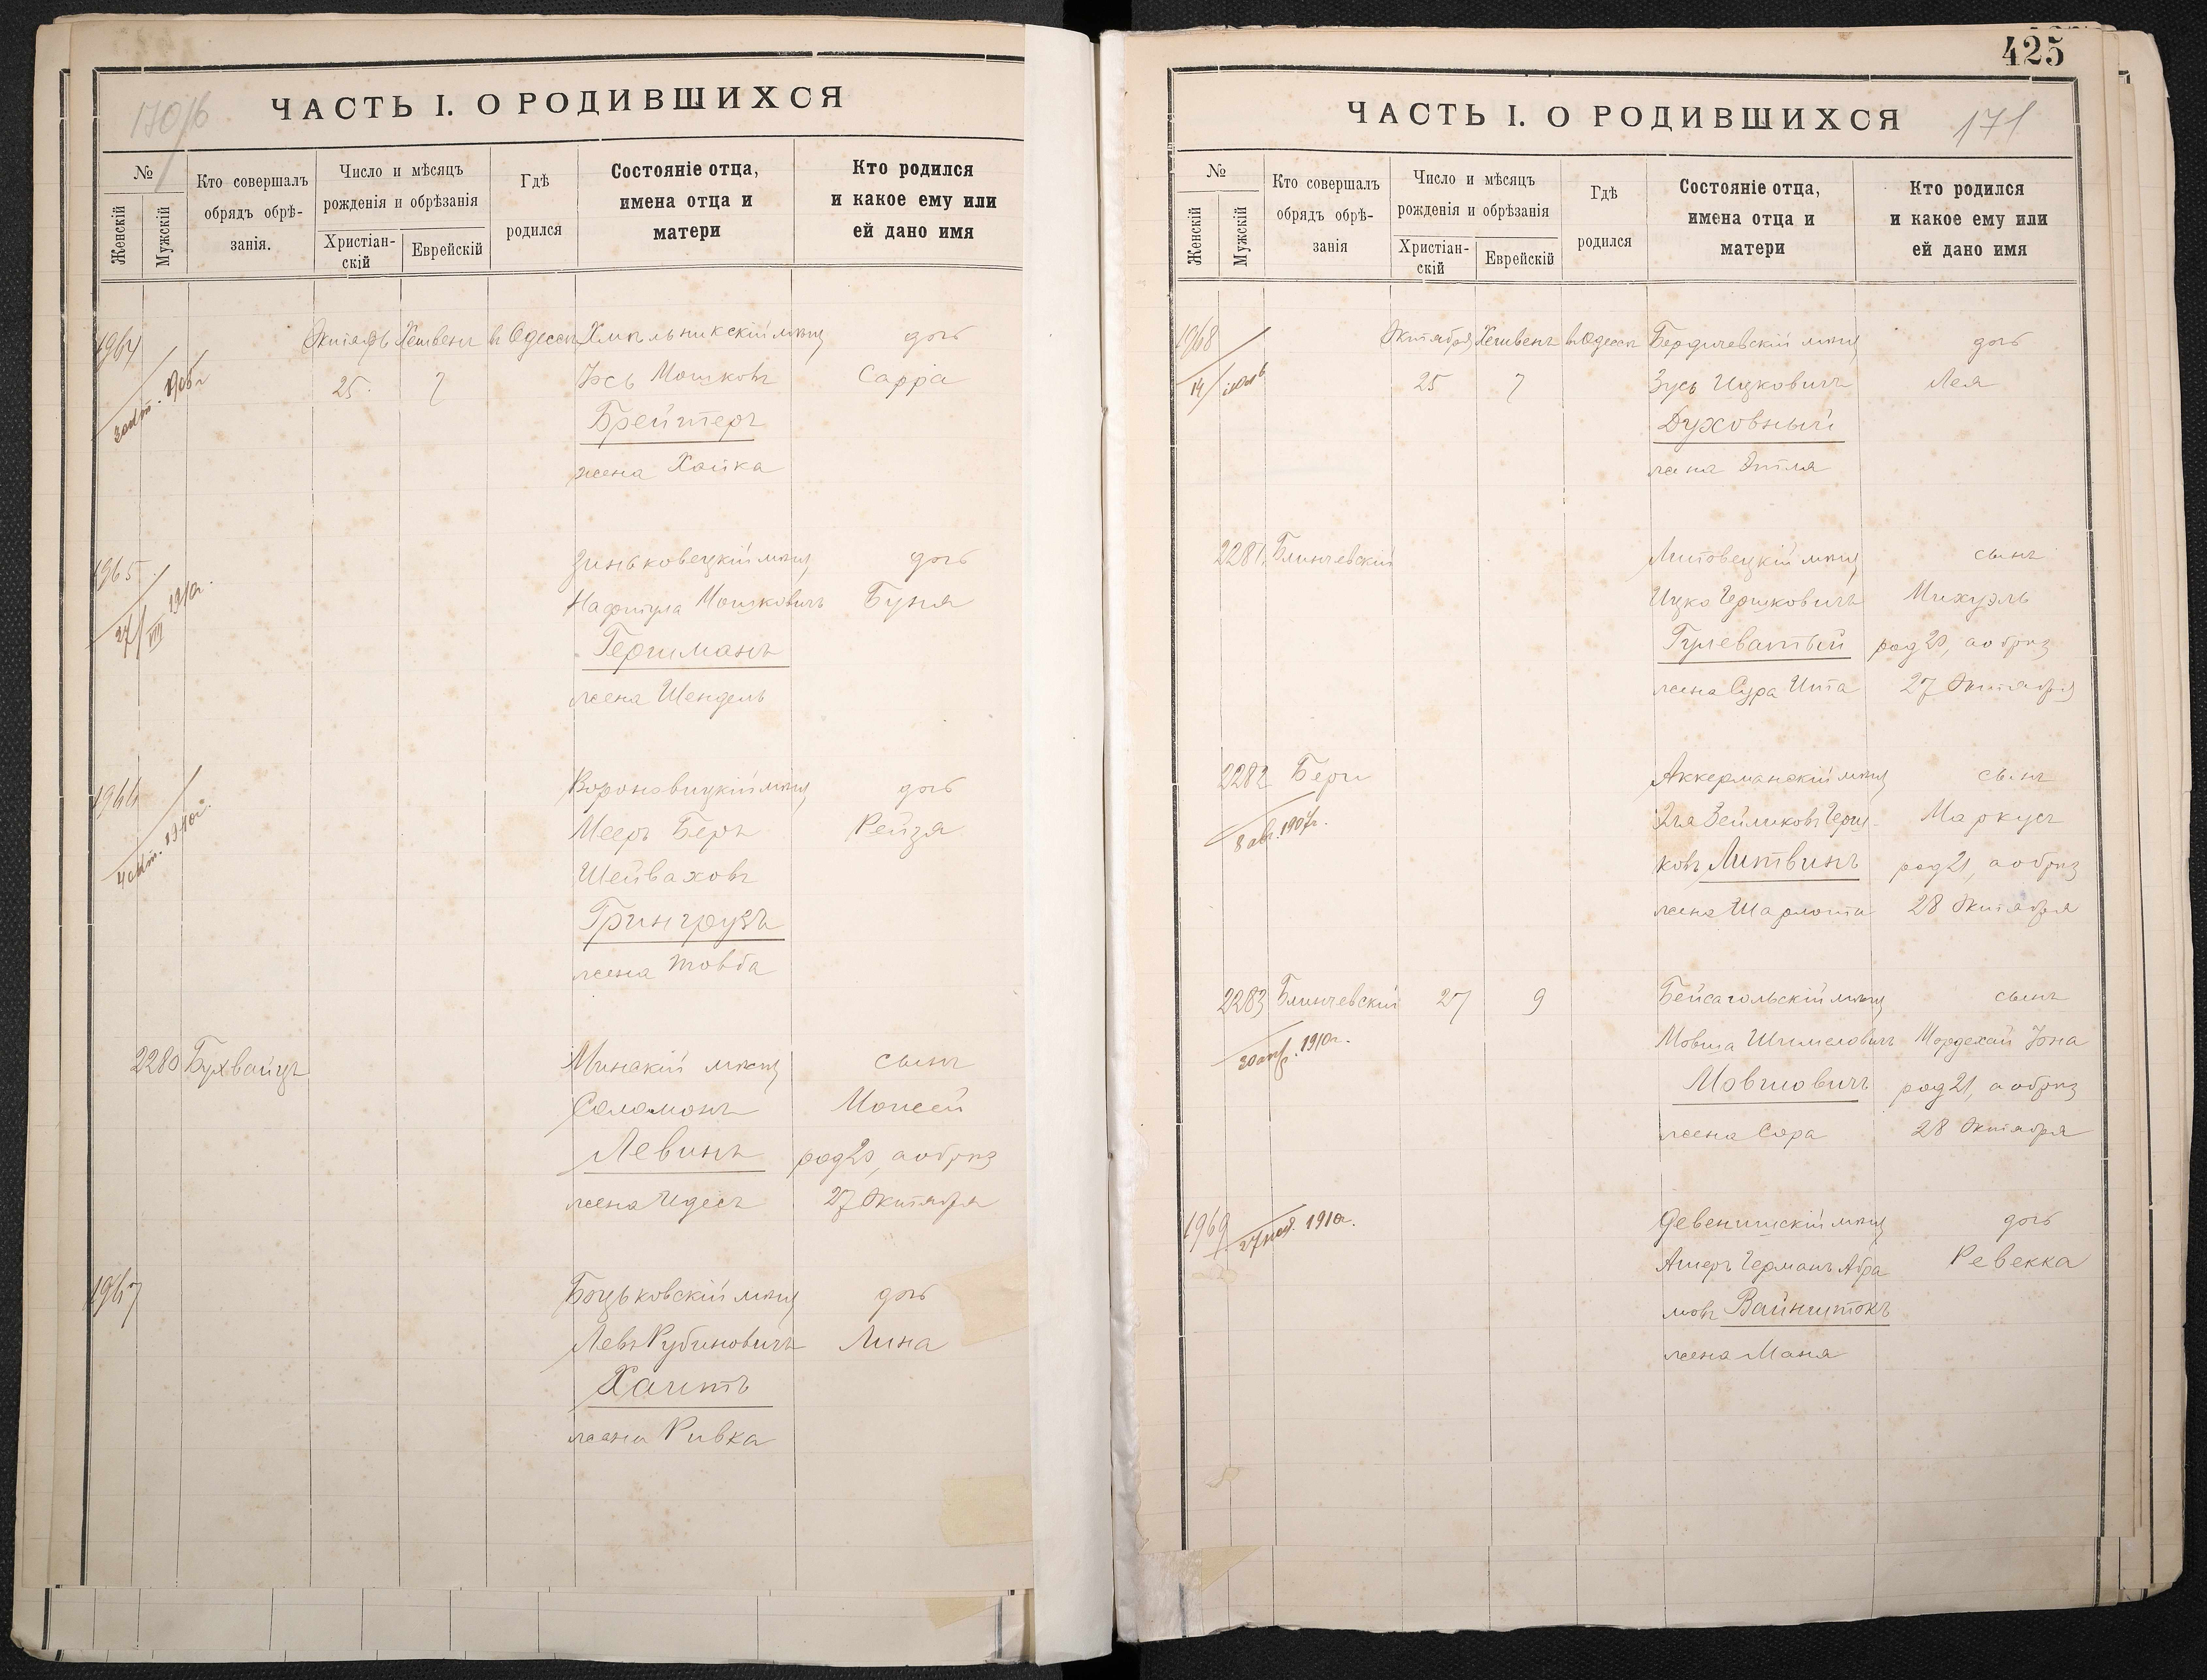 ЧАСТЬ I. О РОДИВШИХСЯ
№
Женскій
Мужскій
Кто совершалъ
обрядъ обрѣ-
занія.
Число и мѣсяцъ
рожденія и обрѣзанія
Христіан-
скій
Еврейскій
Гдѣ
родился
Состояніе отца,
имена отца и
матери
Кто родился
и какое ему или
ей дано имя
1964
Октябрь Хешвенъ в Одессѣ Хмѣльникскій мѣщ дочь
25 7 Мошковъ Сарра
Брейтеръ
жена Хайка
1965
27/VIII 1910г.
Зиньковецкій мѣщ дочь
Нафтула Мошковичъ Буня
Гершманъ
жена Шендель
1966
4 окт. 1910г.
Вороновицкій мѣщ дочь
Мееръ Беръ Рейзя
Шейваховъ
Грингрузъ
жена Товба
2280 Бухвайцъ Минскій мѣщ сынъ
Соломонъ Моисей
Левинъ род 20, а обрѣз
жена Идесъ 27 Октября
1967 Боцьковскій мѣщ дочь
Левъ Рубиновичъ Лина
Хаитъ
жена Ривка
425
ЧАСТЬ I. О РОДИВШИХСЯ
171
№
Женскій
Мужскій
Кто совершалъ
обрядъ обрѣ-
занія
Число и мѣсяцъ
рожденія и обрѣзанія
Христіан-
скій
Еврейскій
Гдѣ
родился
Состояніе отца,
имена отца и
матери
Кто родился
и какое ему или
ей дано имя
1968
Октября Хешвенъ в Одессѣ Бердичевскій мѣщ дочь
25 7 Зусь Ицковичъ Лея
Духовный
жена Этля
2281 Блинчевскій Липовецкій мѣщ сынъ
Ицко Гершковичъ Михуэль
Гулеватый род 20, а обрѣз
жена Сура Ита 27 Октября
2282 Бери Аккерманскій мѣщ сынъ
8 авг. 1907г.
Зейликовъ Герш- Маркусъ
ковъ Литвинъ род 21, а обрѣз
жена Шарлота 28 Октября
2283 Блинчевскій 27 9 Бейсагольскій мѣщ сынъ
30 апр. 1910г.
Мовша Шимеловичъ Мордехай Іона
Мовшовичъ род 21, а обрѣз
жена Сора 28 Октября
1969 27 1910г.
Девенишскій мѣщ дочь
Ашеръ Германъ Абра Ревекка
мовъ Вайнштокъ
жена Маня